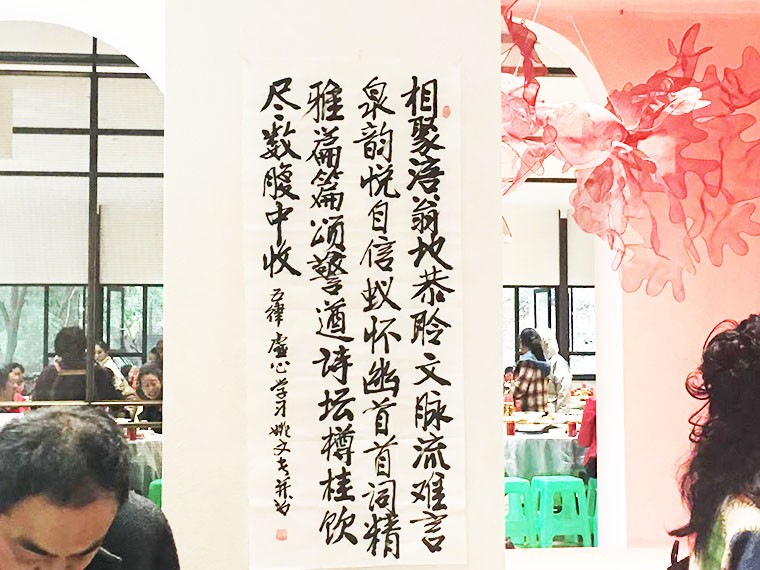 相聚涪翁地恭聆文脉流难言
泉韵悦自信蚁怀幽首首词精
雅篇篇颂警遒诗坛樽桂饮
尽数腹中收
五律 虚心学习 姚文